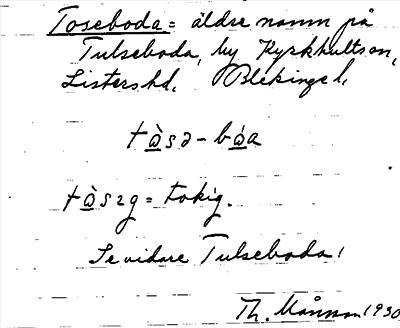 Toseboda = äldre namn på
Tulseboda, by Kyrkhultssn,
Listershd, Blekinge l.
tàsə-bȧa
tàsıg = tokig.
Se vidare Tulseboda!
Th. Månsson 1930